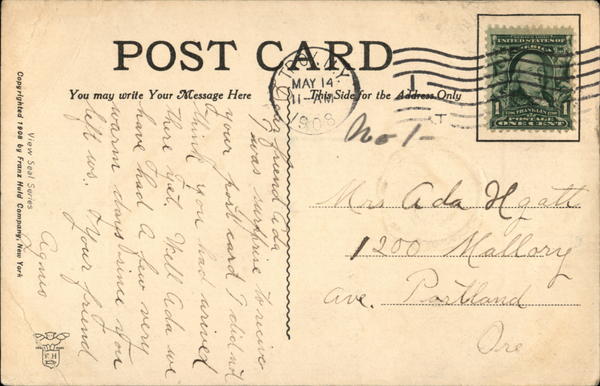 POST CARD
You may write Your Message Here
This Side for the Address Only
MAY 14
11-AM
1908
UNITED STATES OF
AMERICA
FRANKLIN
POSTAGE
1 ONE CENT 1
No 1-
Mrs Ada Hyatt
1200 Mallory
Ave. Portland
Ore
friend Ada
was surprise to recive
your post card I did not
think you had arived
there yet. Well Ada we
have had a few very
warm days since you
left us. Your friend
Agnes
View Seal Series
Copyrighted 1908 by Franz Huld Company, New York
F H